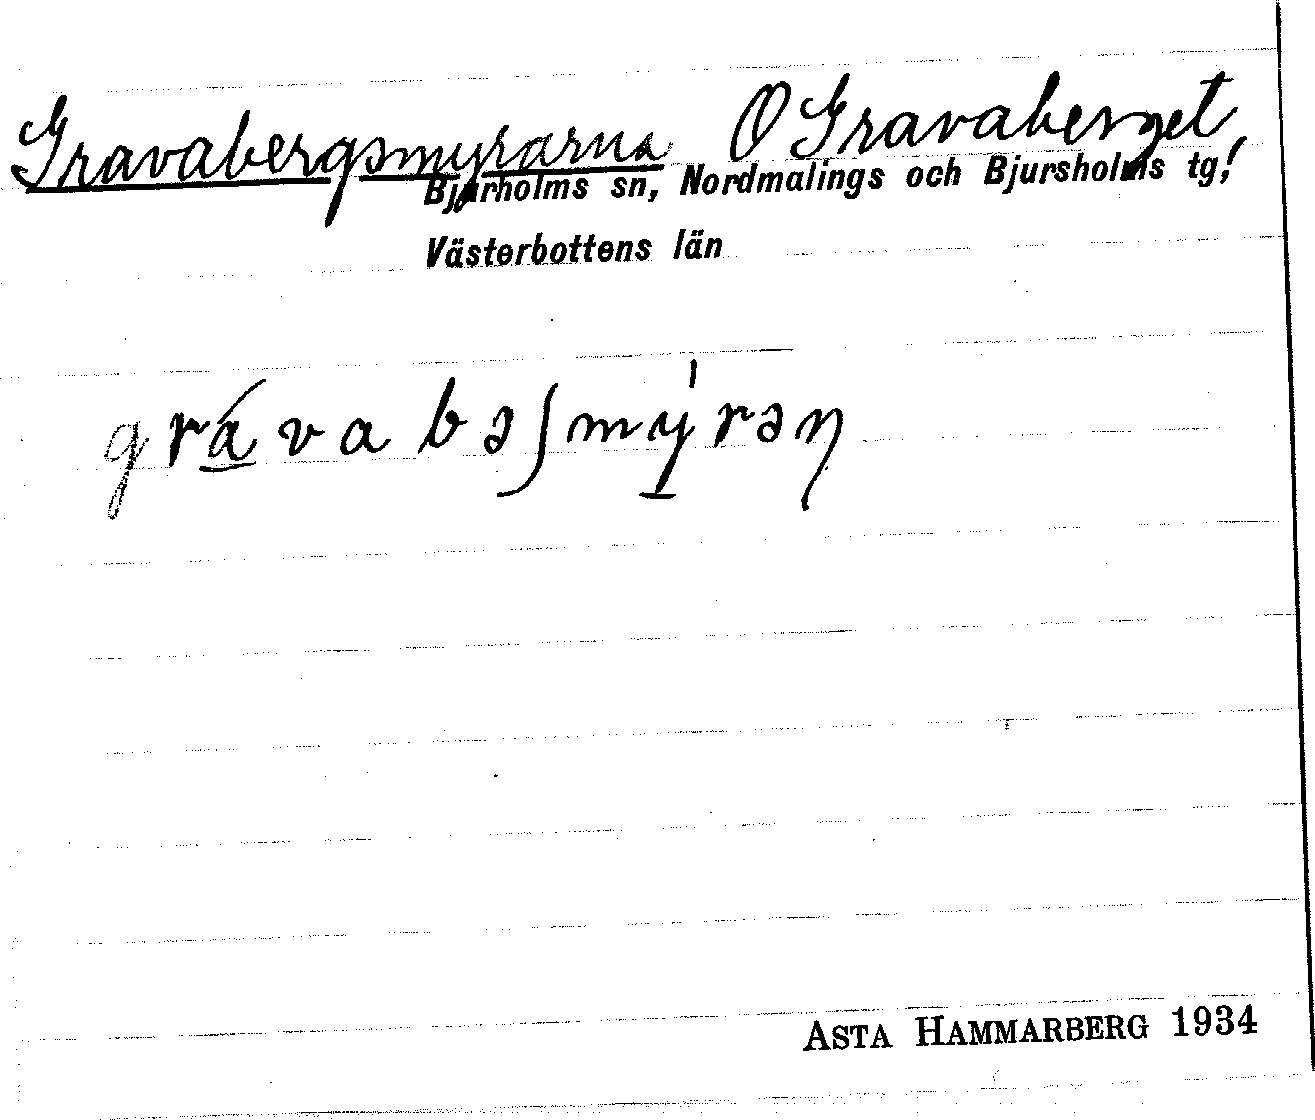 Gravabergsmyrarna O Gravaberget!
Bjurholms sn, Nordmalings och Bjursholms tg,
Västerbottens län
grávabəʃmýrəŋ
ASTA HAMMARBERG 1934